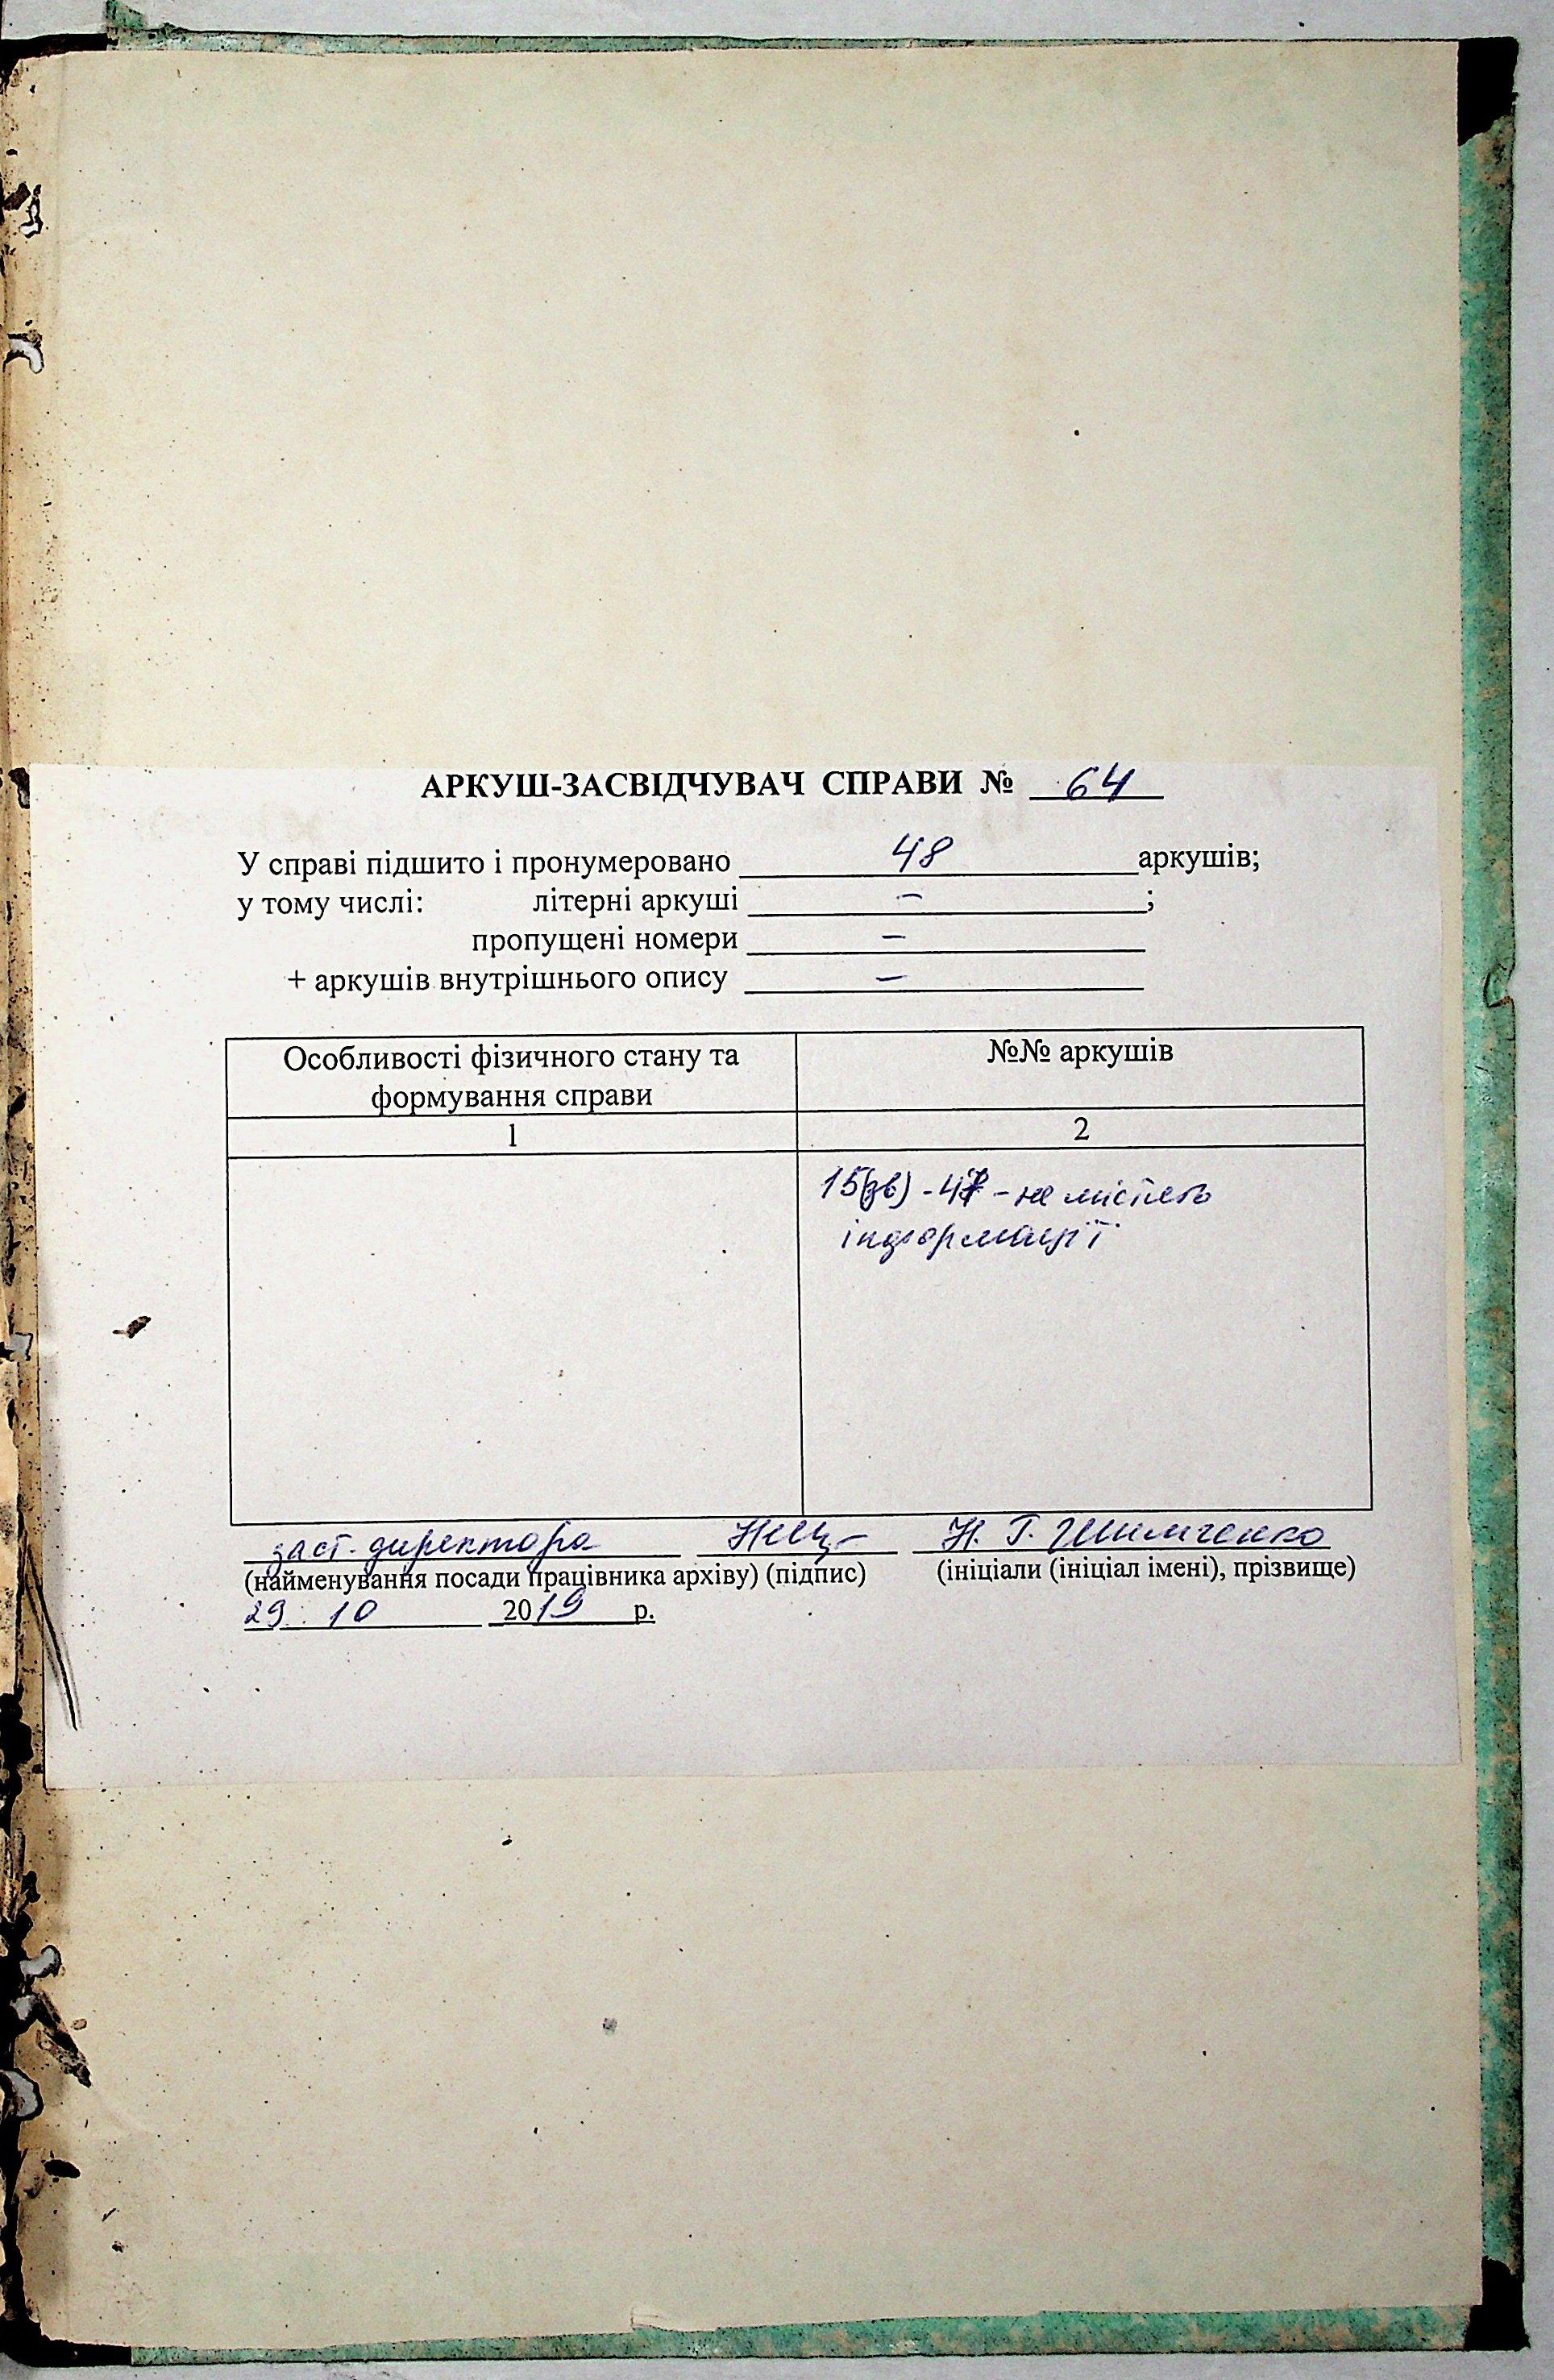 АРКУШ-ЗАСВІДЧУВАЧ СПРАВИ № 64
У справі підшито і пронумеровано 48 аркушів;
у тому числі: літерні аркуші – ;
пропущені номери –
+ аркушів внутрішнього опису –
Особливості фізичного стану та
формування справи
№№ аркушів
1
2
15(зв) - 47 - не містять
інформації
заст. директора Н. Г. Шимченко
(найменування посади працівника архіву) (підпис) (ініціали (ініціал імені), прізвище)
29. 10 2019 р.